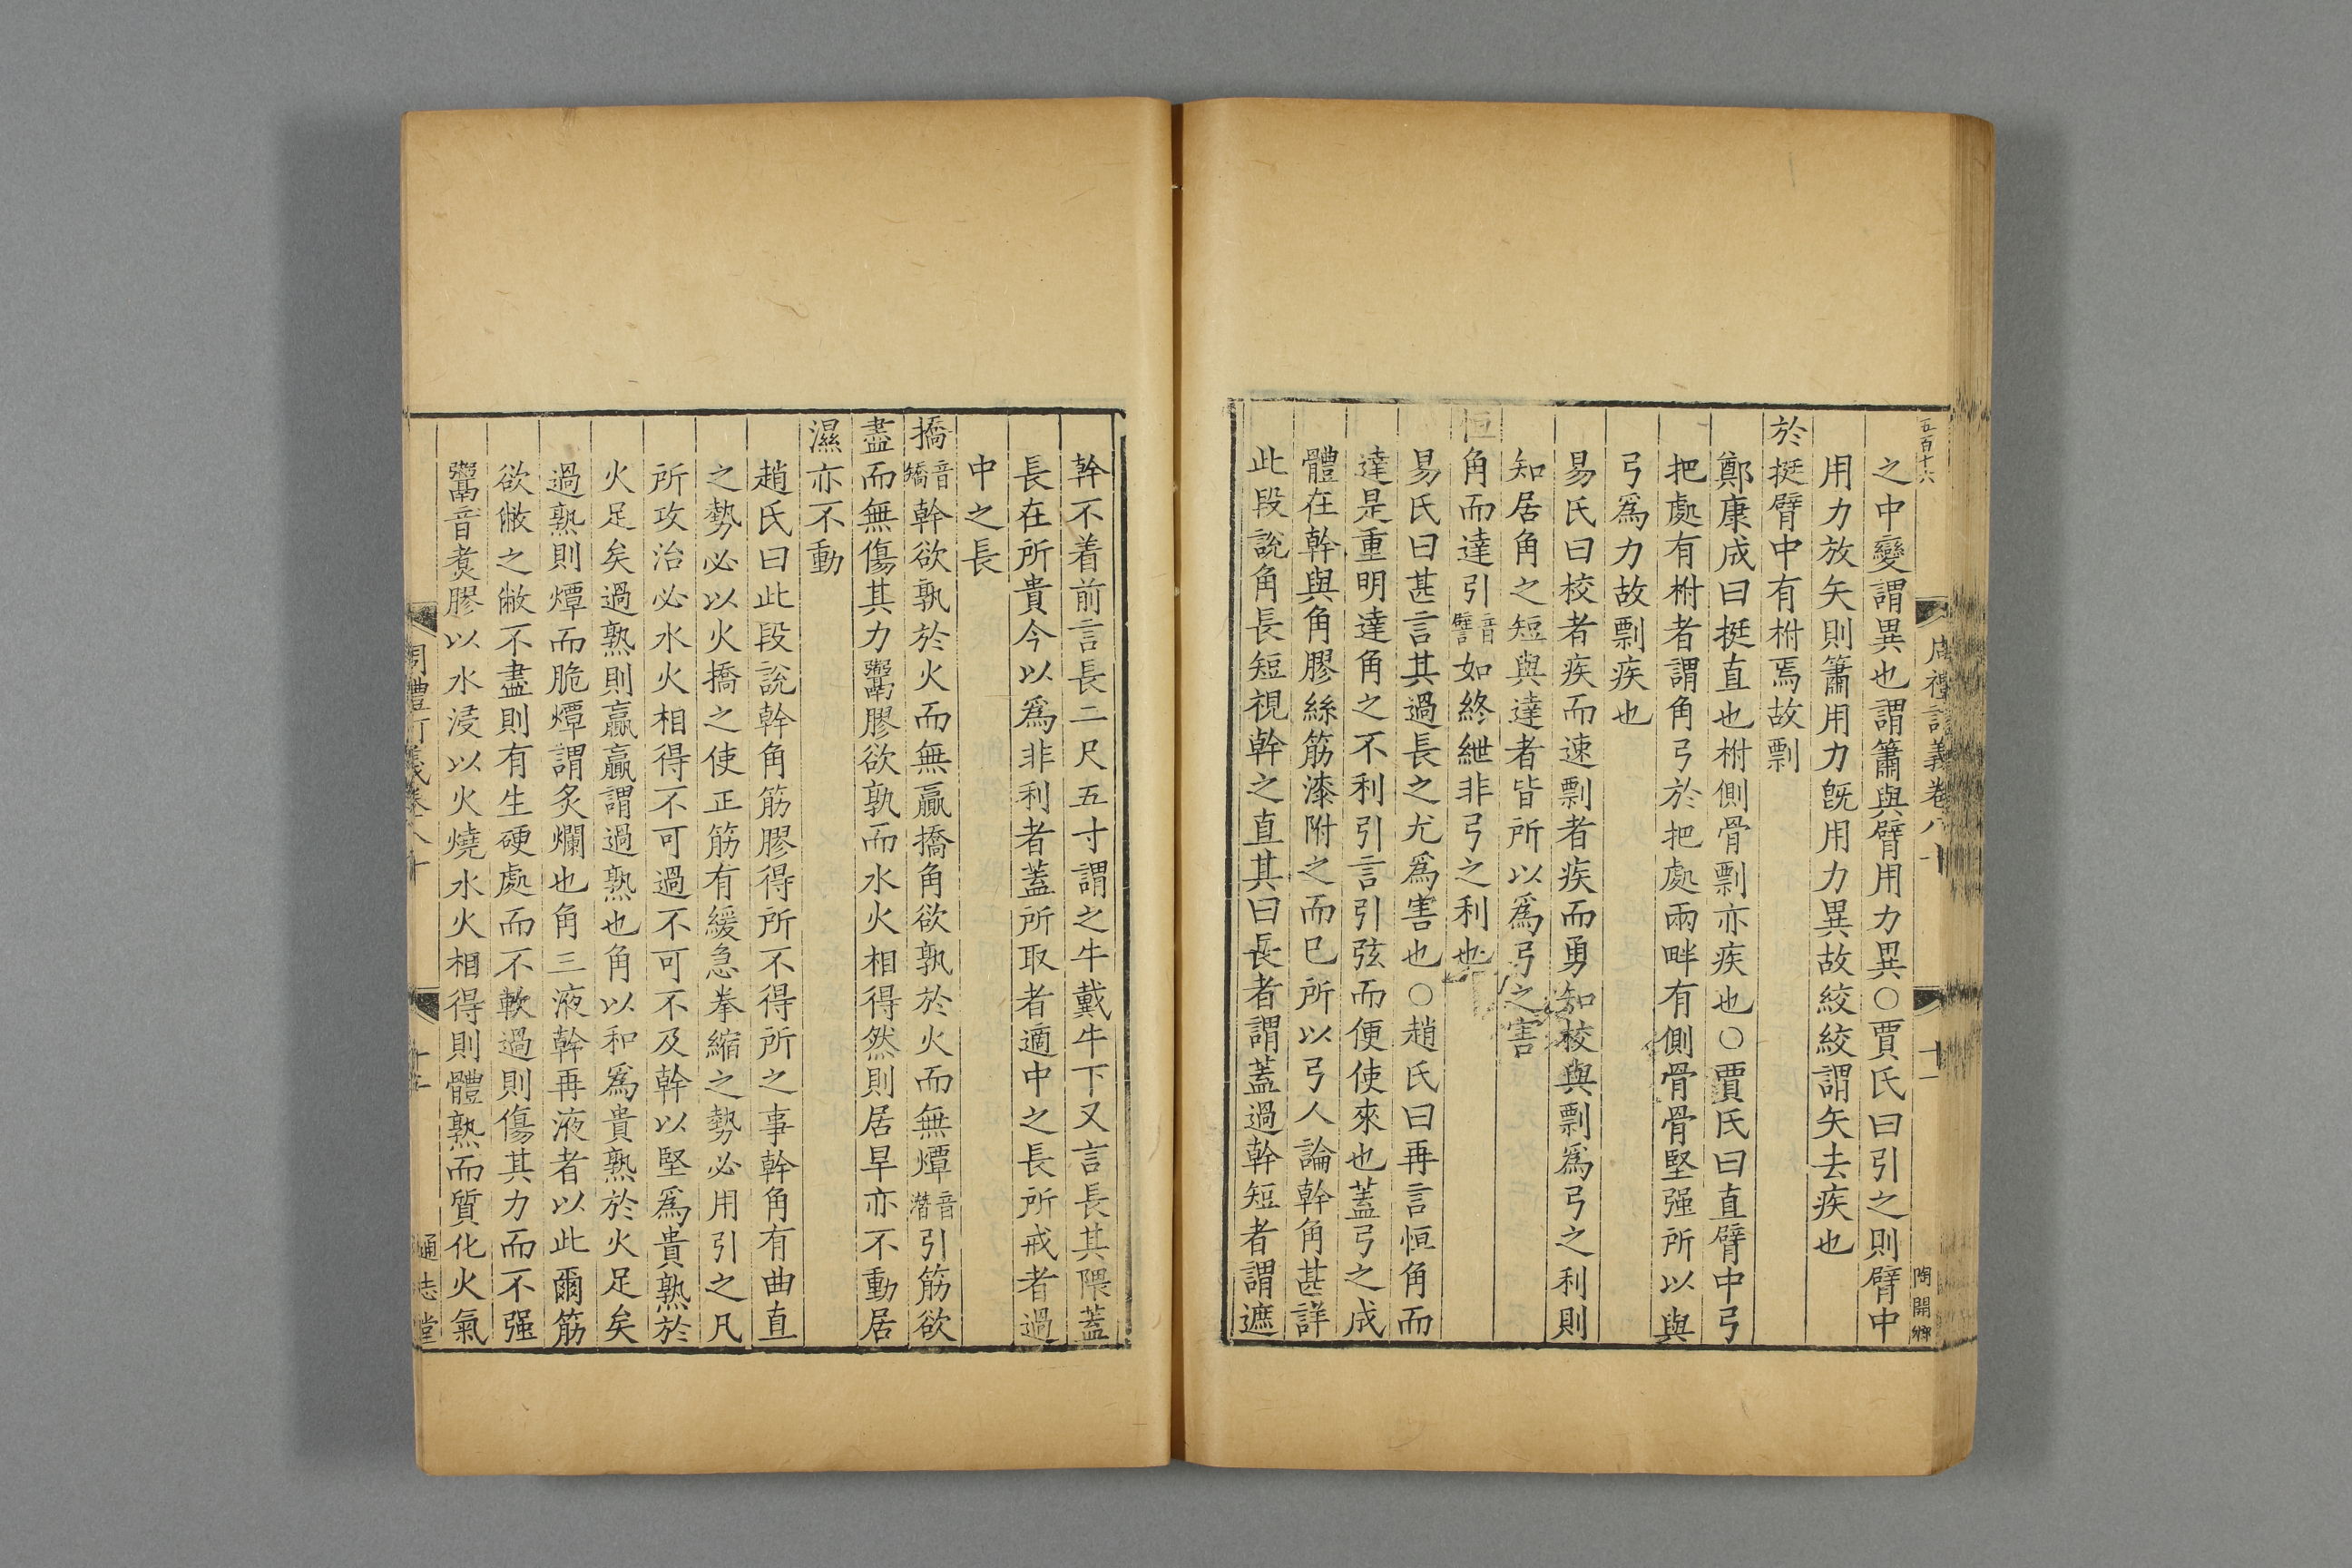 五百十六
周禮訂義卷八十
十一
陶開卿
之中變謂異也謂簫與臂用力異○賈氏曰引之則臂中
用力放矢則簫用力旣用力異故絞絞謂矢去疾也
於挺臂中有柎焉故剽
鄭康成曰挺直也柎側骨剽亦疾也○賈氏曰直臂中弓
把處有柎者謂角弓於把處兩畔有側骨骨堅强所以與
弓爲力故剽疾也
易氏曰校者疾而速剽者疾而勇知校與剽爲弓之利則
知居角之短與達者皆所以爲弓之害
恒角而達引音譬如終紲非弓之利也
易氏曰甚言其過長之尤爲害也○趙氏曰再言恒角而
達是重明達角之不利引言引弦而便使來也蓋弓之成
體在幹與角膠絲筋漆附之而巳所以弓人論幹角甚詳
此段說角長短視幹之直其曰長者謂蓋過幹短者謂遮
幹不着前言長二尺五寸謂之牛戴牛下又言長其隈蓋
長在所貴今以爲非利者蓋所取者適中之長所戒者過
中之長
撟音矯幹欲孰於火而無贏撟角欲孰於火而無燂音潛引筋欲
盡而無傷其力鬻膠欲孰而水火相得然則居旱亦不動居
濕亦不動
趙氏曰此段說幹角筋膠得所不得所之事幹角有曲直
之勢必以火撟之使正筋有緩急拳縮之勢必用引之凡
所攻治必水火相得不可過不可不及幹以堅爲貴熟於
火足矣過熟則贏贏謂過熟也角以和爲貴熟於火足矣
過熟則燂而脆燂謂炙爛也角三液幹再液者以此爾筋
欲敝之敝不盡則有生硬處而不軟過則傷其力而不强
鬻音煑膠以水浸以火燒水火相得則體熟而質化火氣
周禮訂義卷八十
通志堂